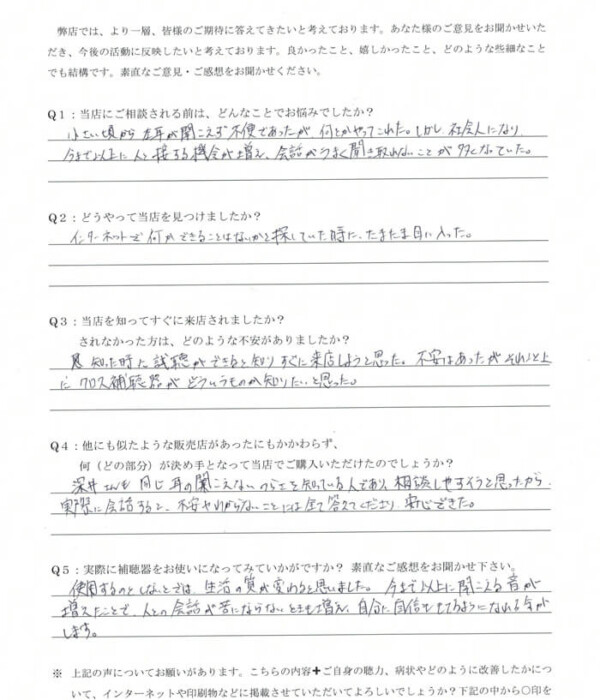 弊店では、より一層、皆様のご期待に答えてきたいと考えております。あなた様のご意見をお聞かせいた
だき、今後の活動に反映したいと考えております。良かったこと、嬉しかったこと、どのような些細なこと
でも結構です。素直なご意見・ご感想をお聞かせください。
Q1：当店にご相談される前は、どんなことでお悩みでしたか？
小さい頃から左耳が聞こえず不便であったが、何とかやってこれた。しかし、社会人になり、
今まで以上に人と接する機会が増え、会話がうまく聞き取れないことが多くなっていた。
Q2：どうやって当店を見つけましたか？
インターネットで何かできることはないかと探していた時に、たまたま目に入った。
Q3：当店を知ってすぐに来店されましたか？
されなかった方は、どのような不安がありましたか？
知った時に試聴ができると知りすぐに来店しようと思った。不安はあったがそれ以上
にクロス補聴器がどういうものか知りたいと思った。
Q4：他にも似たような販売店があったにもかかわらず、
何（どの部分）が決め手となって当店でご購入いただけたのでしょうか？
深井さんも同じ耳の聞こえないつらさを知っている人であり、相談しやすそうと思ったから。
実際に会話すると、不安やわからないことには全て答えてくださり、安心できた。
Q5：実際に補聴器をお使いになってみていかがですか？ 素直なご感想をお聞かせ下さい。
使用するのとしないとでは、生活の質が変わると思いました。今まで以上に聞こえる音が
増えたことで、人との会話が苦にならないときも増え、自分に自信をもてるようになれる気が
します。
※ 上記の声についてお願いがあります。こちらの内容✚ご自身の聴力、病状やどのように改善したかにつ
いて、インターネットや印刷物などに掲載させていただいてよろしいでしょうか？下記の中から○印を